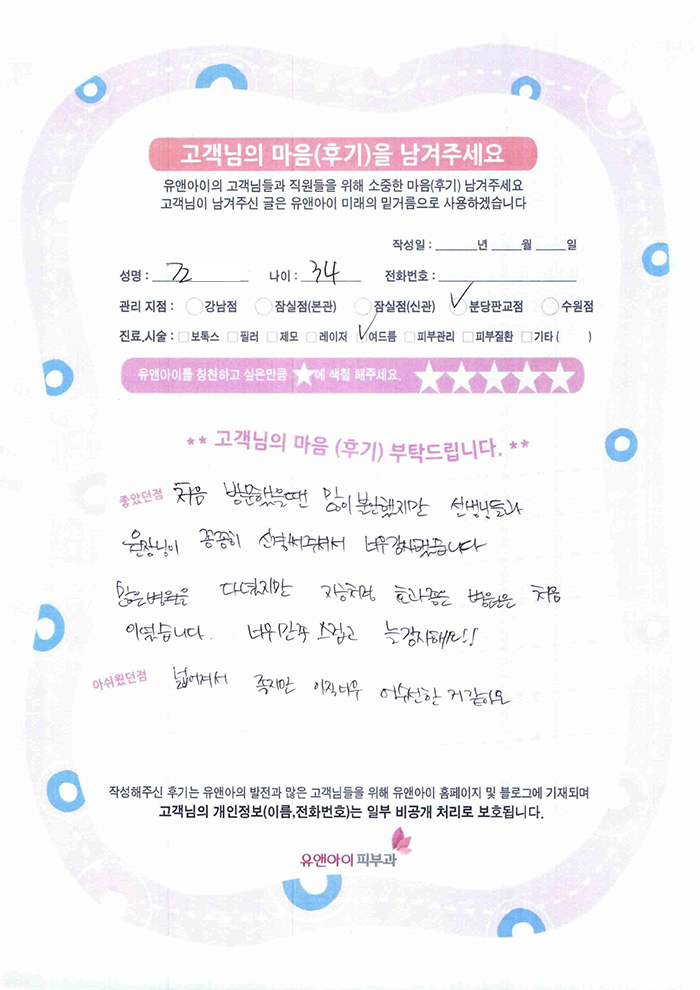 고객님의 마음(후기)을 남겨주세요
유앤아이의 고객님들과 직원들을 위해 소중한 마음(후기) 남겨주세요
고객님이 남겨주신 글은 유앤아이 미래의 밑거름으로 사용하겠습니다
작성일 : ______년 ____월 ____일
성명 : 나이 : 34 전화번호 :
관리 지점 : 강남점 잠실점(본관) 잠실점(신관) 분당판교점 수원점
진료,시술 : 보톡스 필러 제모 레이저 여드름 피부관리 피부질환 기타 ( )
유앤아이를 칭찬하고 싶은만큼 ★에 색칠 해주세요. ★★★★★
** 고객님의 마음 (후기) 부탁드립니다. **
좋았던점 처음 방문했을땐 많이 불안했지만 선생님들과
원장님이 꼼꼼히 신경써주셔서 너무감사했습니다
많은병원을 다녔지만 이처럼 효과좋은 병원은 처음
이였습니다. 너무만족스럽고 늘감사해요!!
아쉬웠던점 넓어져서 좋지만 아직너무 어수선한 거 같아요
작성해주신 후기는 유앤아의 발전과 많은 고객님들을 위해 유앤아이 홈페이지 및 블로그에 기재되며
고객님의 개인정보(이름,전화번호)는 일부 비공개 처리로 보호됩니다.
유앤아이피부과